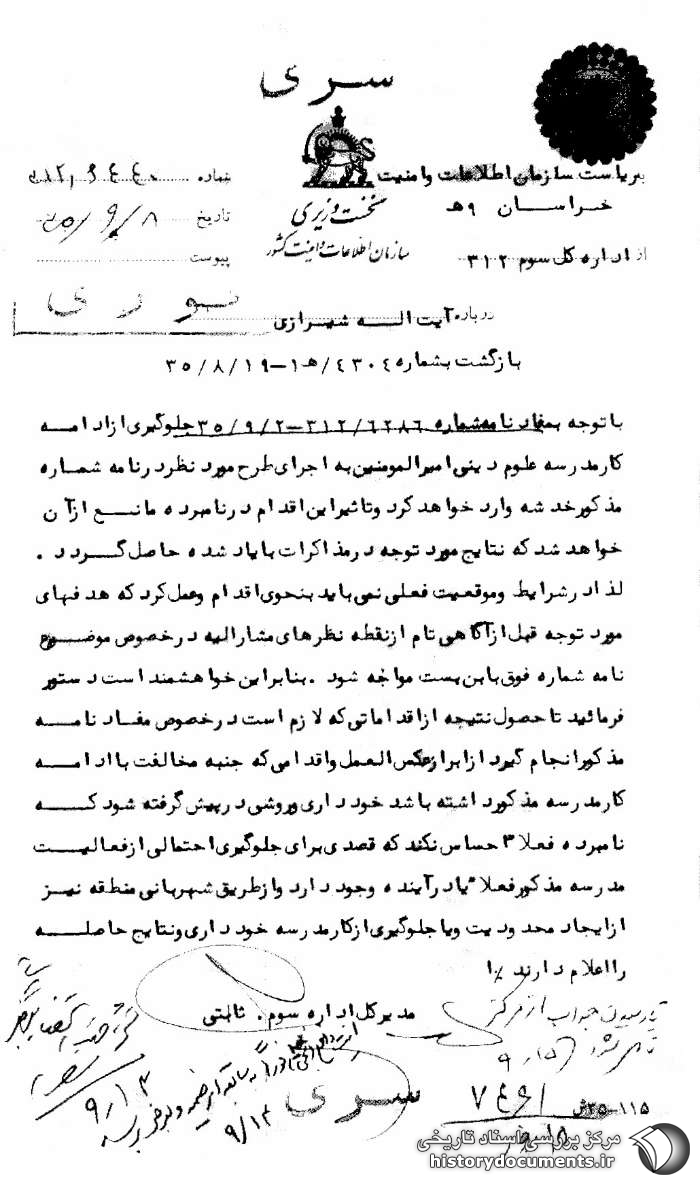 سری
بریاست سازمان اطلاعات وامنیت
خراسان ۹هـ
از اداره کل سوم ۳۱۲
نخست وزیری
سازمان اطلاعات و امنیت کشور
شماره
تاریخ ۳۵/۹/۸
پیوست
نوری
درباره آیت اله شیرازی
بازگشت بشماره ۴۳۰۴/هـ۱-۳۵/۸/۱۹
با توجه بمفاد نامه شماره ۳۱۲/۶۲۸۶-۳۵/۹/۲ جلوگیری از ادامه
کار مدرسه علوم دینی امیرالمومنین به اجرای طرح مورد نظر در نامه شماره
مذکور خدشه وارد خواهد کرد و تاثیر این اقدام در نامبرده مانع از آن
خواهد شد که نتایج مورد توجه در مذاکرات با یاد شده حاصل گردد .
لذا در شرایط و موقعیت فعلی نمی باید بنحوی اقدام وعمل کرد که هدفهای
مورد توجه قبل از آگاهی تام از نقطه نظرهای مشارالیه در خصوص موضوع
نامه شماره فوق با بن بست مواجه شود . بنابراین خواهشمند است دستور
فرمائید تا حصول نتیجه از اقداماتی که لازم است در خصوص مفاد نامه
مذکور انجام گیرد از ابراز عکس العمل و اقدامی که جنبه مخالفت با ادامه
کار مدرسه مذکور داشته باشد خودداری و روشی در پیش گرفته شود که
نامبرده فعلا احساس نکند که قصدی برای جلوگیری احتمالی از فعالیت
مدرسه مذکور فعلا یا در آینده وجود دارد و از طریق شهربانی منطقه نیز
از ایجاد محدودیت و یا جلوگیری از کار مدرسه خودداری و نتایج حاصله
را اعلام دارند ٪ا
مدیر کل اداره سوم . ثابتی
سری
۹/۱۳
۹/۱۴
۷۴۶۱
۱۱۵-۳۵ش
مرکز بررسی اسناد تاریخی
historydocuments.ir